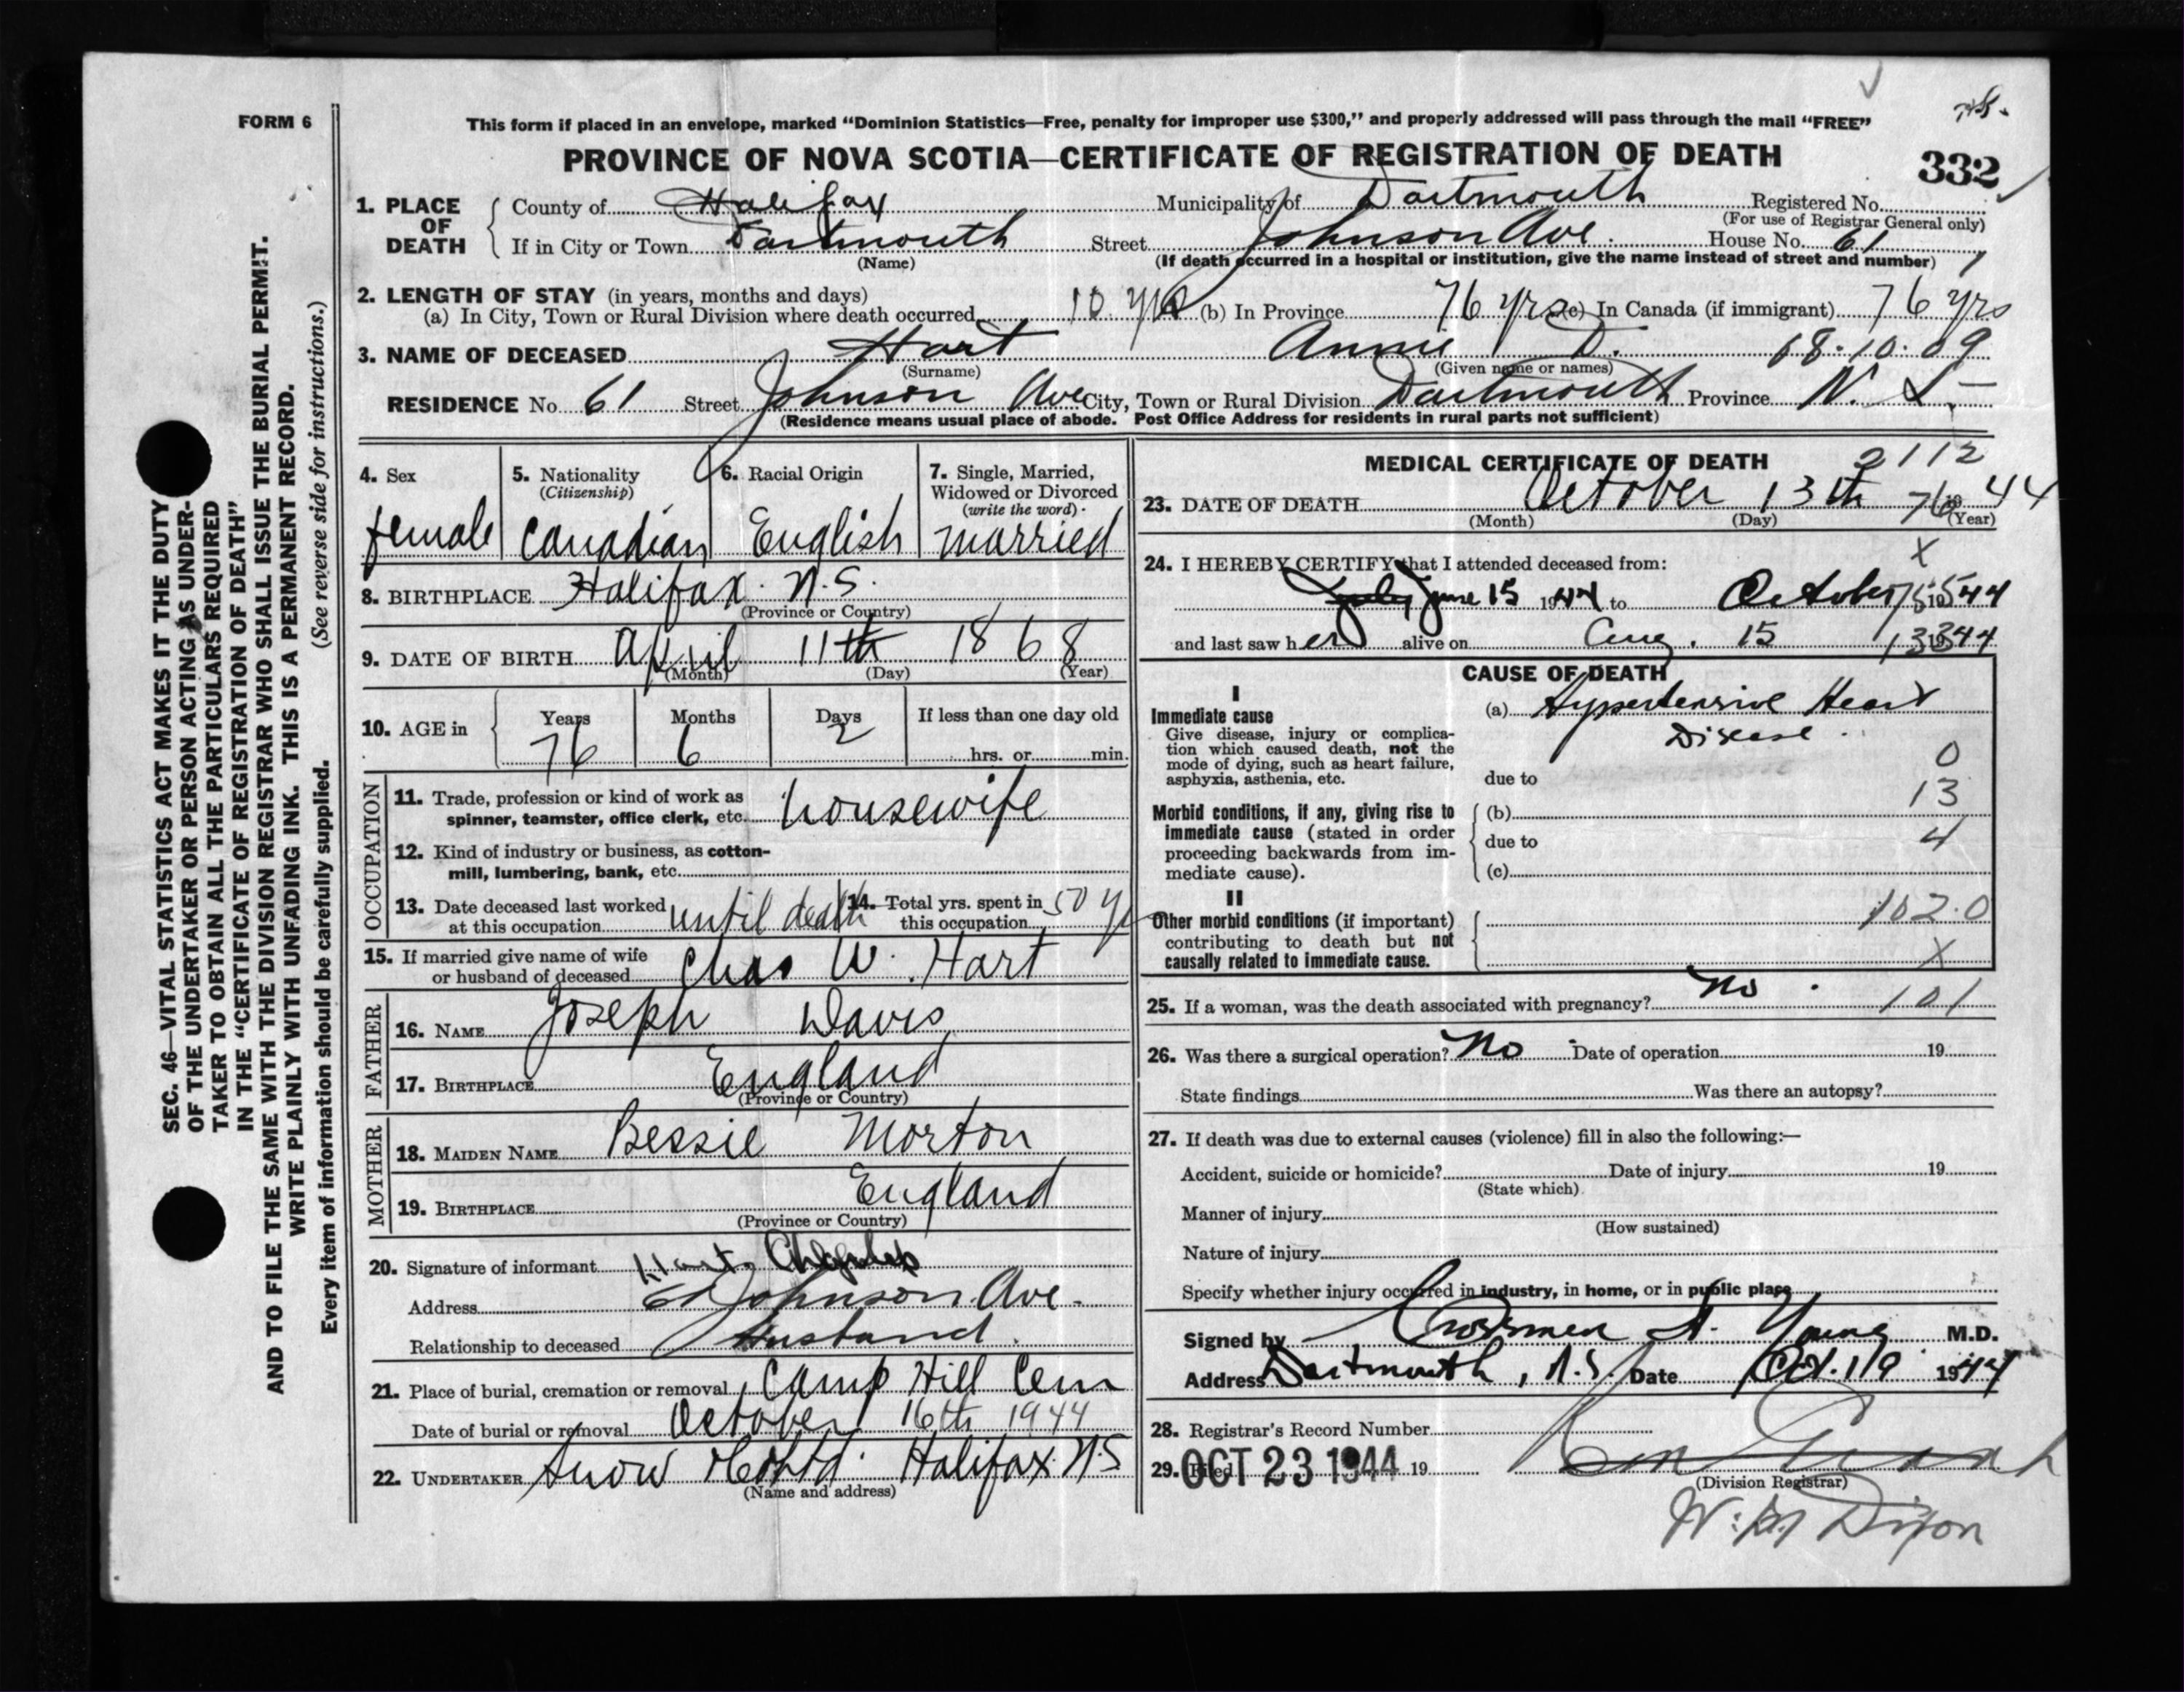 FORM 6
This form if placed in an envelope, marked “Dominion Statistics—Free, penalty for improper use $300,” and properly addressed will pass through the mail “FREE”
PROVINCE OF NOVA SCOTIA—CERTIFICATE OF REGISTRATION OF DEATH
332
1. PLACE OF DEATH
County of Halifax Municipality of Dartmouth Registered No.
(For use of Registrar General only)
If in City or Town Dartmouth Street Johnson Ave. House No. 61
(Name) (If death occurred in a hospital or institution, give the name instead of street and number)
2. LENGTH OF STAY (in years, months and days)
(a) In City, Town or Rural Division where death occurred 10 yrs (b) In Province 76 yrs (c) In Canada (if immigrant) 76 yrs
3. NAME OF DECEASED Hart Annie D. 68.10.09
(Surname) (Given name or names)
RESIDENCE No 61 Street Johnson Ave City, Town or Rural Division Dartmouth Province N. S.
(Residence means usual place of abode. Post Office Address for residents in rural parts not sufficient)
4. Sex
female
5. Nationality
(Citizenship)
Canadian
6. Racial Origin
English
7. Single, Married,
Widowed or Divorced
(write the word)
married
8. BIRTHPLACE Halifax N.S.
(Province or Country)
9. DATE OF BIRTH April 11th 1868
(Month) (Day) (Year)
10. AGE in
Years Months Days If less than one day old
76 6 2 hrs. or min.
OCCUPATION
11. Trade, profession or kind of work as
spinner, teamster, office clerk, etc. housewife
12. Kind of industry or business, as cotton-
mill, lumbering, bank, etc.
13. Date deceased last worked
at this occupation until death
14. Total yrs. spent in
this occupation 50 y
15. If married give name of wife
or husband of deceased Chas W. Hart
FATHER
16. NAME Joseph Davis
17. BIRTHPLACE England
(Province or Country)
MOTHER
18. MAIDEN NAME Bessie Morton
19. BIRTHPLACE England
(Province or Country)
20. Signature of informant Hart, Charles
Address 61 Johnson Ave.
Relationship to deceased Husband.
21. Place of burial, cremation or removal Camp Hill Cem
Date of burial or removal October 16th 1944
22. UNDERTAKER Snow & Co Ltd. Halifax N.S
(Name and address)
MEDICAL CERTIFICATE OF DEATH 2112
23. DATE OF DEATH October 13th 76 19 44
(Month) (Day) (Year)
24. I HEREBY CERTIFY that I attended deceased from: X
July June 15 1944 to October 1944
and last saw her alive on Aug. 15 1944
CAUSE OF DEATH
I
Immediate cause
Give disease, injury or complica-
tion which caused death, not the
mode of dying, such as heart failure,
asphyxia, asthenia, etc.
(a) Hypertensive Heart
Disease.
0
due to
13
Morbid conditions, if any, giving rise to
immediate cause (stated in order
proceeding backwards from im-
mediate cause).
(b)
due to 4
(c)
II
Other morbid conditions (if important)
contributing to death but not
causally related to immediate cause.
102.0
X
25. If a woman, was the death associated with pregnancy? no. 101
26. Was there a surgical operation? No Date of operation 19
State findings Was there an autopsy?
27. If death was due to external causes (violence) fill in also the following:—
Accident, suicide or homicide? Date of injury 19
(State which)
Manner of injury
(How sustained)
Nature of injury
Specify whether injury occurred in industry, in home, or in public place
Signed by Crossman H. Young M.D.
Address Dartmouth, N.S. Date Oct. 19 1944
28. Registrar's Record Number
29. Filed OCT 23 1944 19
(Division Registrar)
W. M Dixon
SEC. 46—VITAL STATISTICS ACT MAKES IT THE DUTY
OF THE UNDERTAKER OR PERSON ACTING AS UNDER-
TAKER TO OBTAIN ALL THE PARTICULARS REQUIRED
IN THE “CERTIFICATE OF REGISTRATION OF DEATH”
AND TO FILE THE SAME WITH THE DIVISION REGISTRAR WHO SHALL ISSUE THE BURIAL PERMIT.
WRITE PLAINLY WITH UNFADING INK. THIS IS A PERMANENT RECORD.
(See reverse side for instructions.)
Every item of information should be carefully supplied.